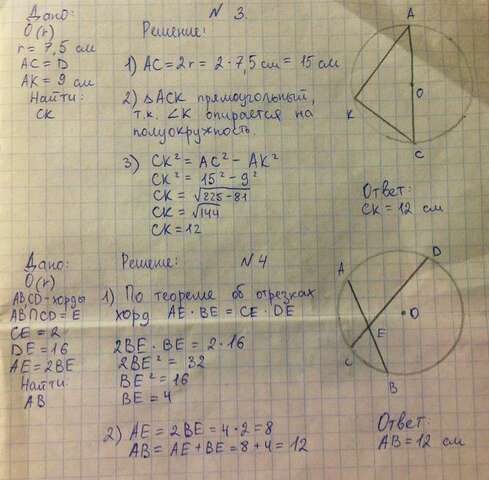 N 3.
Дано:
O(r)
r = 7,5 см
AC = D
AK = 9 см
Найти:
CK
Решение:
1) AC = 2r = 2 · 7,5 см = 15 см
2) △ACK прямоугольный,
т.к. ∠K опирается на
полуокружность.
3) CK² = AC² − AK²
CK² = 15² − 9²
CK = √225 − 81
CK = √144
CK = 12
A
K
O
C
Ответ:
CK = 12 см
N 4
Дано:
O(r)
AB, CD - хорды
AB∩CD = E
CE = 2
DE = 16
AE = 2BE
Найти
AB
Решение:
1) По теореме об отрезках
хорд AE · BE = CE · DE
2BE · BE = 2 · 16
2BE² = 32
BE² = 16
BE = 4
2) AE = 2BE = 4 · 2 = 8
AB = AE + BE = 8 + 4 = 12
D
A
O
E
C
B
Ответ:
AB = 12 см